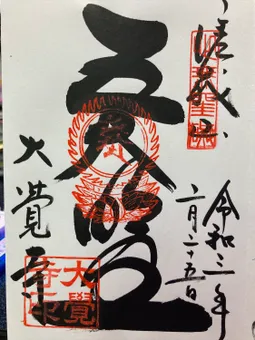 嵯峨
五大明王
大覚寺
令和三年
二月二十五日
大覺
寺印